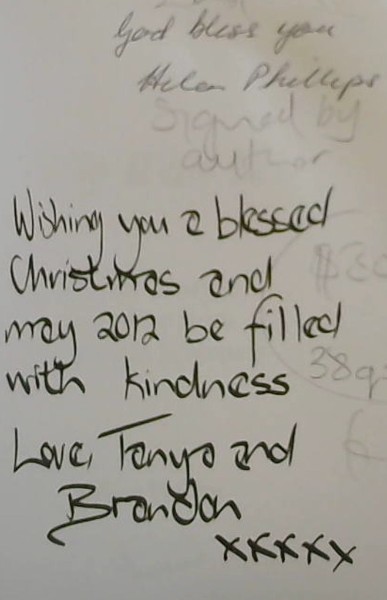 God bless you
Helen Phillips
Signed by
author
Wishing you a blessed
Christmas and
may 2012 be filled
with kindness
Love, Tanya and
Brandon
xxxxx